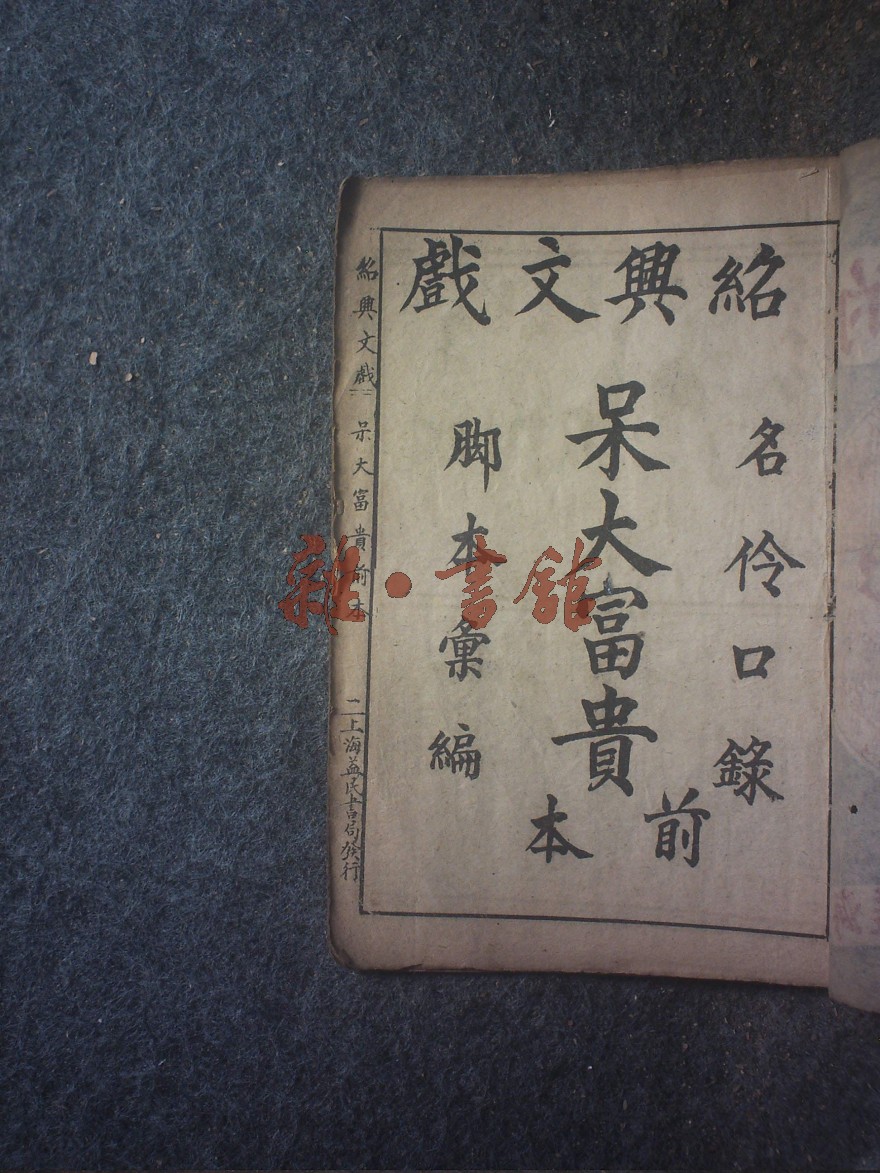 紹興文戲
名伶口錄
呆大富貴
前本
脚本彙編
紹興文戲 呆大富貴前本 二 上海益民書局發行
雜·書館